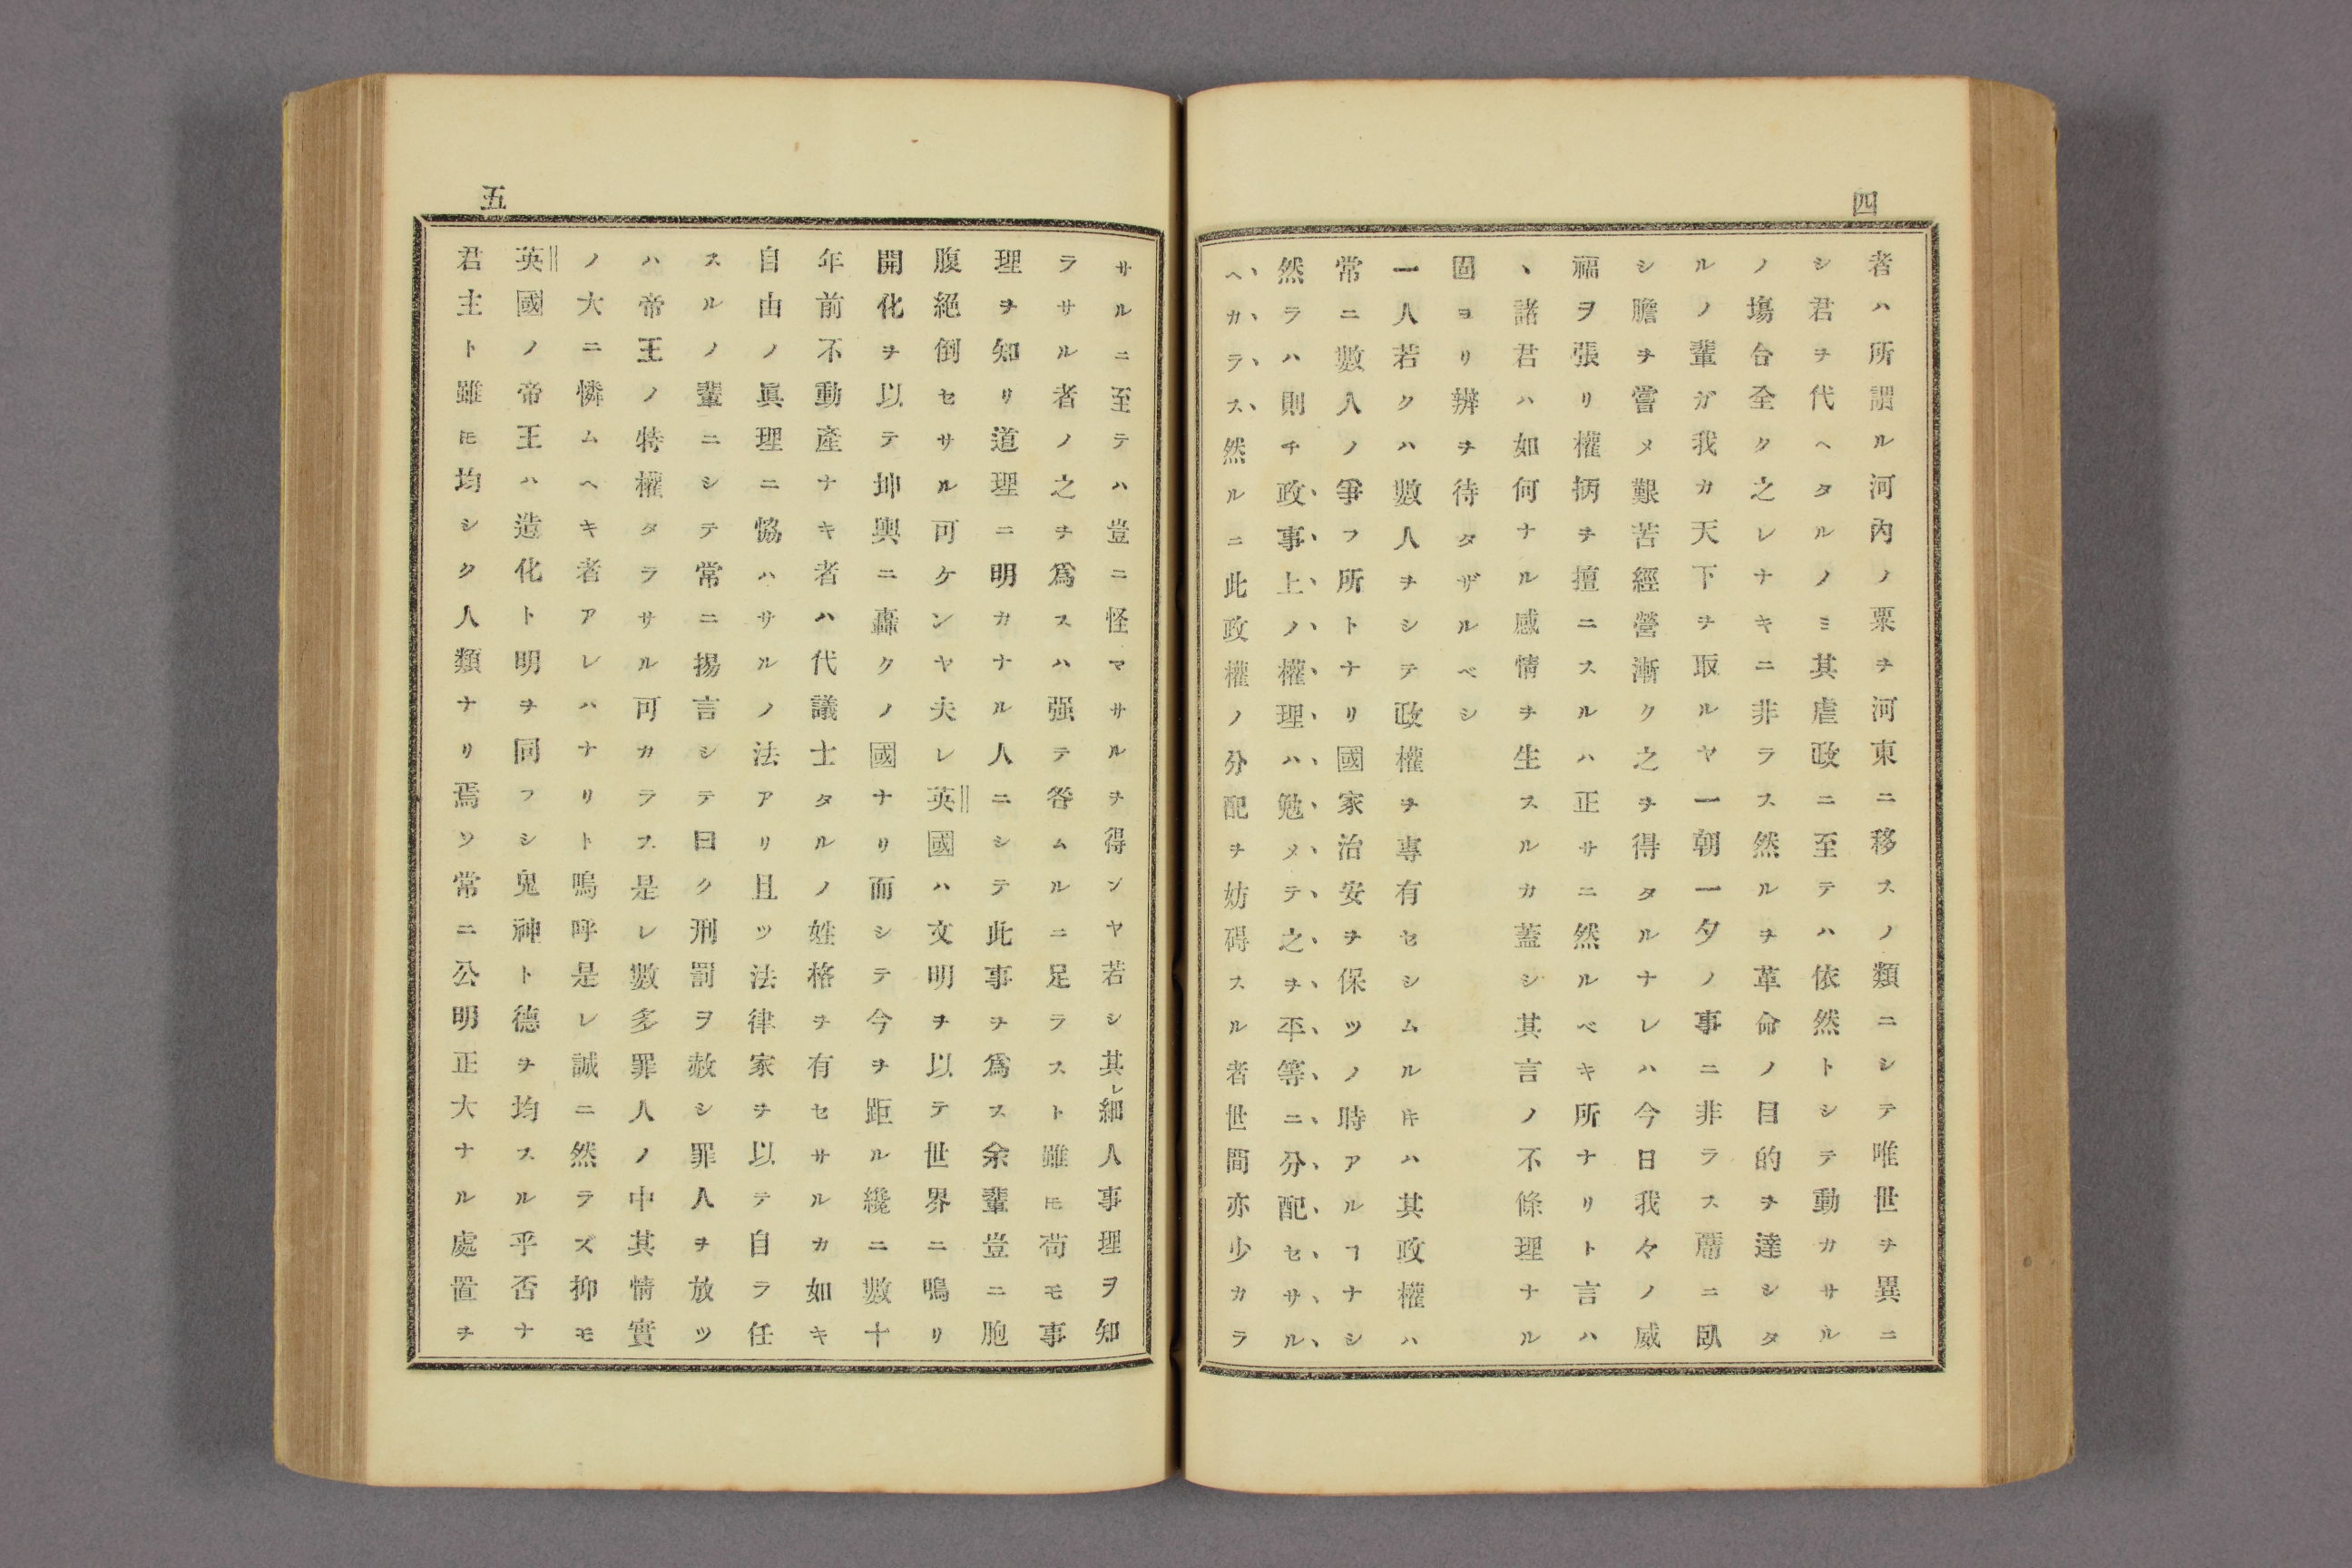 四
者ハ所謂ル河內ノ粟ヲ河東ニ移スノ類ニシテ唯世ヲ異ニ
シ君ヲ代ヘタルノミ其虐政ニ至テハ依然トシテ動カサル
ノ塲台全ク之レナキニ非ラス然ルヲ革命ノ目的ヲ達シタ
ルノ輩ガ我カ天下ヲ取ルヤ一朝一夕ノ事ニ非ラス蓐ニ臥
シ膽ヲ嘗メ艱苦經營漸ク之ヲ得タルナレハ今日我々ノ威
福ヲ張リ權柄ヲ擅ニスルハ正サニ然ルベキ所ナリト言ハ
、諸君ハ如何ナル感情ヲ生スルカ蓋シ其言ノ不條理ナル
固ヨリ辨ヲ待タザルベシ
一人若クハ數人ヲシテ政權ヲ專有セシムルキハ其政權ハ
常ニ數人ノ爭フ所トナリ國家治安ヲ保ツノ時アルヿナシ
然ラハ則チ政事上ノ權理ハ勉メテ之ヲ平等ニ分配セサル
ヘカラス然ルニ此政權ノ分配ヲ妨碍スル者世間亦少カラ
五
サルニ至テハ豈ニ怪マサルヲ得ンヤ若シ其レ細人事理ヲ知
ラサル者ノ之ヲ爲スハ强テ咎ムルニ足ラスト雖𪜈苟モ事
理ヲ知リ道理ニ明カナル人ニシテ此事ヲ爲ス余輩豈ニ胞
腹絕倒セサル可ケンヤ夫レ英國ハ文明ヲ以テ世界ニ鳴リ
開化ヲ以テ坤輿ニ轟クノ國ナリ而シテ今ヲ距ル纔ニ數十
年前不動產ナキ者ハ代議士タルノ姓格ヲ有セサルカ如キ
自由ノ眞理ニ恊ハサルノ法アリ且ツ法律家ヲ以テ自ラ任
スルノ輩ニシテ常ニ揚言シテ曰ク刑罰ヲ赦シ罪人ヲ放ツ
ハ帝王ノ特權タラサル可カラス是レ數多罪人ノ中其情實
ノ大ニ憐ムヘキ者アレハナリト嗚呼是レ誠ニ然ラズ抑モ
英國ノ帝王ハ造化ト明ヲ同フシ鬼神ト德ヲ均スル乎否ナ
君主ト雖𪜈均シク人類ナリ焉ソ常ニ公明正大ナル處置ヲ